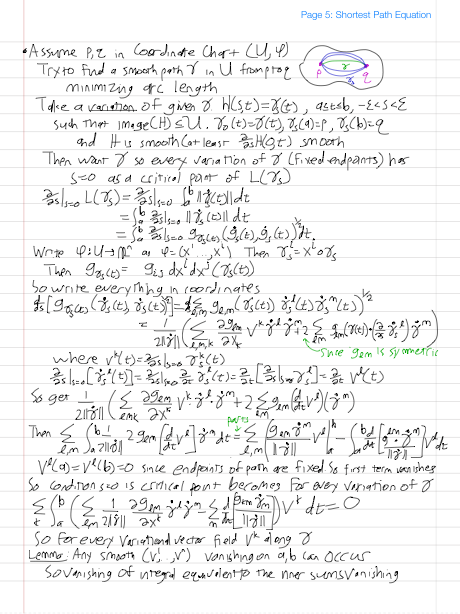 Page 5: Shortest Path Equation
• Assume p, q in Coordinate Chart (U, φ)
Try to find a smooth path γ in U from p to q
minimizing arc length
p γ q
γₛ
Take a variation of given γ h(s,t)=γₛ(t), a≤t≤b, -ε<s<ε
such that image(H) ⊆ U. γ₀(t)=γ(t), γₛ(a)=p, γₛ(b)=q
and H is smooth (at least ∂/∂s H(0,t) smooth
Then want γ so every variation of γ (fixed endpoints) has
s=0 as a critical point of L(γₛ)
∂/∂s|ₛ₌₀ L(γₛ) = ∂/∂s|ₛ₌₀ ∫ₐᵇ ||γ̇ₛ(t)|| dt
= ∫ₐᵇ ∂/∂s|ₛ₌₀ ||γ̇ₛ(t)|| dt
= ∫ₐᵇ ∂/∂s|ₛ₌₀ g_γₛ(t) (γ̇ₛ(t), γ̇ₛ(t))^½ dt
Write φ: U→ℝⁿ as φ=(x¹...xⁿ) Then γₛⁱ = xⁱ∘γₛ
Then g_γₛ(t) = gᵢⱼ dxⁱ dxʲ (γₛ(t))
So write everything in coordinates
d/ds [g_γₛ(t) (γ̇ₛ(t), γ̇ₛ(t))^½] = d/ds Σ_{l,m} g_lm (γₛ(t)) γ̇ₛˡ(t) γ̇ₛᵐ(t))^½
= 1/(2||γ̇||) (Σ_{l,m,k} ∂g_lm/∂xᵏ Vᵏ γ̇ˡ γ̇ᵐ + 2 Σ_{lm} g_lm(γ(t)) (∂/∂s γ̇ₛˡ) γ̇ᵐ)
since g_lm is symmetric
where vᵏ(t) = ∂/∂s|ₛ₌₀ γₛᵏ(t)
∂/∂s|ₛ₌₀ [γ̇ₛˡ(t)] = ∂/∂s|ₛ₌₀ ∂/∂t γₛˡ(t) = ∂/∂t [∂/∂s|ₛ₌₀ γₛˡ] = ∂/∂t Vˡ(t)
So get 1/(2||γ̇||) (Σ_{lmk} ∂g_lm/∂xᵏ Vᵏ γ̇ˡ γ̇ᵐ + 2 Σ_{lm} g_lm (d/dt Vˡ)(γ̇ᵐ)
parts
Then Σ_{l,m} ∫ₐᵇ 1/(2||γ̇||) 2g_lm [d/dt Vˡ] γ̇ᵐ dt = Σ_{l,m} [g_lm γ̇ᵐ/||γ̇|| Vˡ]ₐᵇ - ∫ₐᵇ d/dt [g_lm γ̇ᵐ/||γ̇||] Vˡ dt
Vˡ(a)=Vˡ(b)=0 since endpoints of path are fixed so first term vanishes
So condition s=0 is critical point becomes for every variation of γ
Σ_k ∫ₐᵇ (Σ_{l,m} 1/(2||γ̇||) ∂g_lm/∂xᵏ γ̇ˡ γ̇ᵐ - Σ_m d/dt [g_km γ̇ᵐ/||γ̇||]) Vᵏ dt = 0
So for every variational vector field Vᵏ along γ
Lemma: Any smooth (V¹...Vⁿ) vanishing on a, b can occur
So vanishing of integral equivalent to the inner sums vanishing